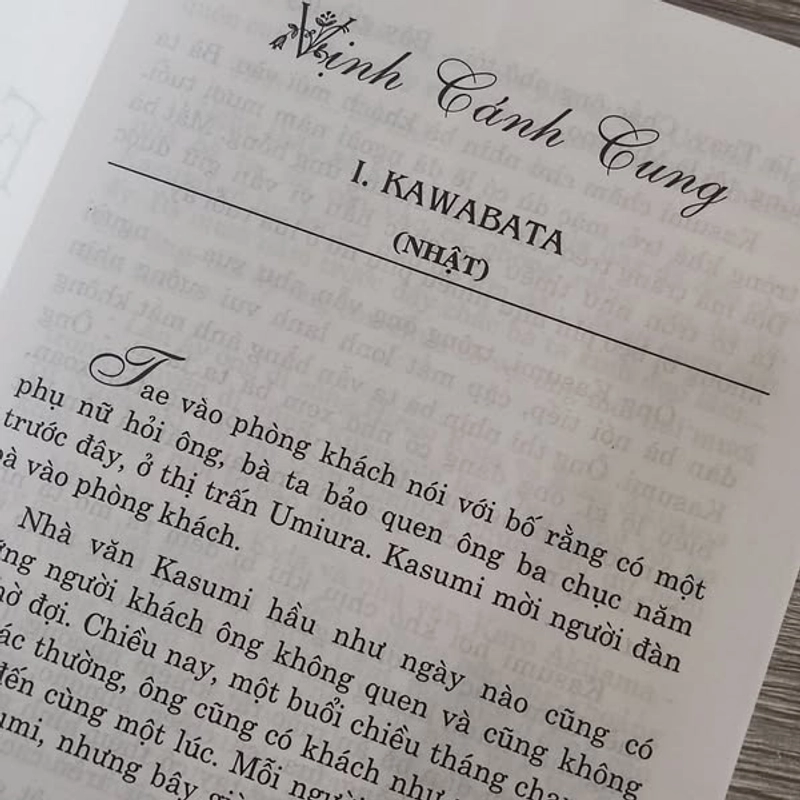 Vịnh Cánh Cung
I. KAWABATA
(NHẬT)
Tae vào phòng khách nói với bố rằng có một
phụ nữ hỏi ông, bà ta bảo quen ông ba chục năm
trước đây, ở thị trấn Umiura. Kasumi mời người đàn
bà vào phòng khách.
Nhà văn Kasumi hầu như ngày nào cũng có
người khách ông không quen và cũng không
đợi. Chiều nay, một buổi chiều tháng
thường, ông cũng có khách như
đến cùng một lúc. Mỗi
nhưng bây